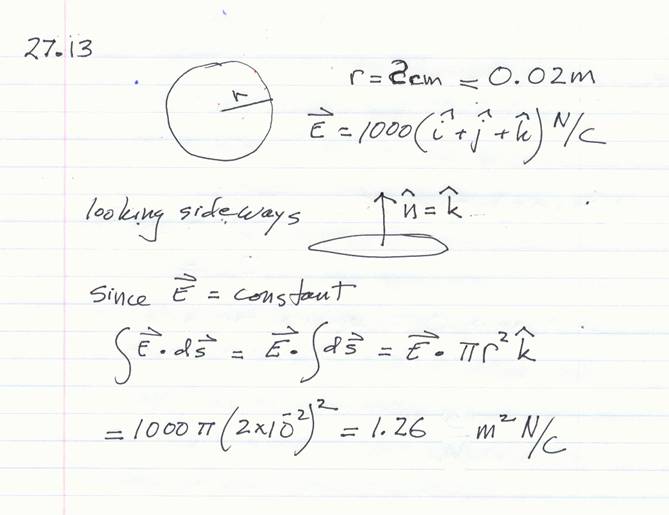 27.13
r
r = 2cm = 0.02m
E⃗ = 1000(î + ĵ + k̂) N/C
looking sideways
n̂ = k̂
since E⃗ = constant
∫E⃗ · ds⃗ = E⃗ · ∫ds⃗ = E⃗ · πr² k̂
= 1000 π (2×10⁻²)² = 1.26 m² N/C